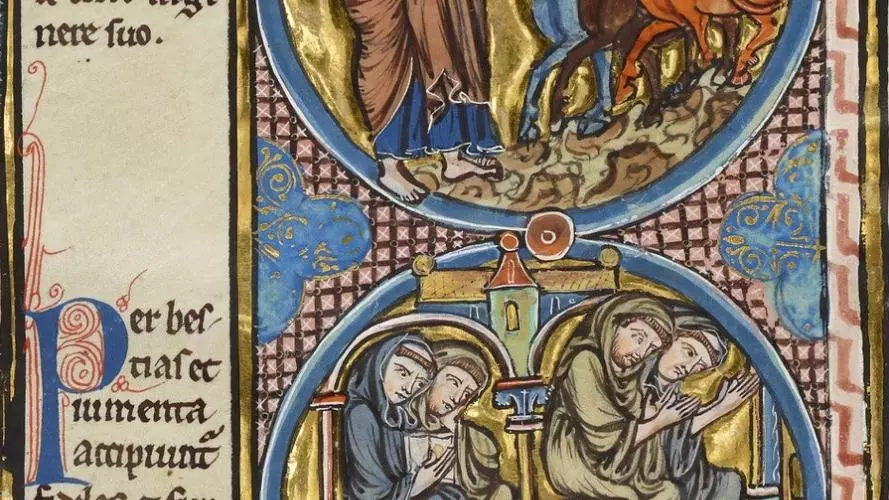 nere suo.
Per bes-
tias et
iumenta
accipiunt᷑